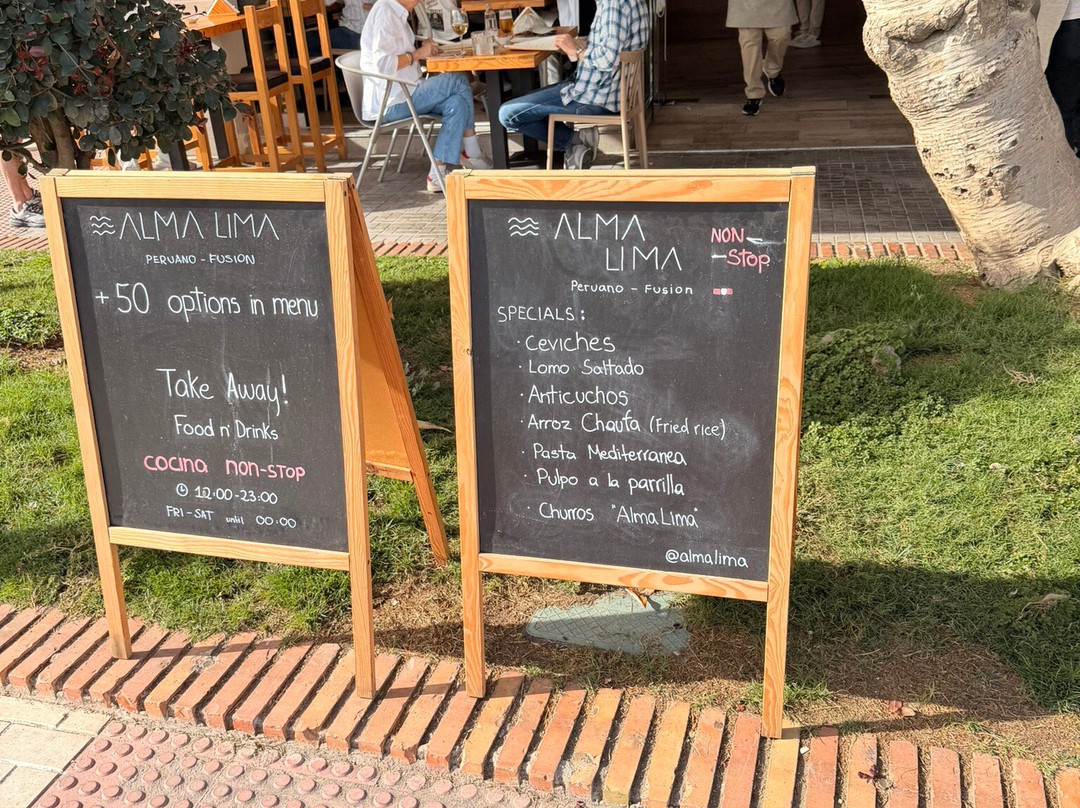 ALMA LIMA
PERUANO - FUSION
+50 options in menu
Take Away!
Food n' Drinks
COCINA NON-STOP
12:00-23:00
FRI-SAT until 00:00
ALMA
LIMA
Peruano - Fusion
NON
-STOP
SPECIALS:
· Ceviches
· Lomo Saltado
· Anticuchos
· Arroz Chaufa (Fried rice)
· Pasta Mediterranea
· Pulpo a la parrilla
· Churros "Alma Lima"
@almalima